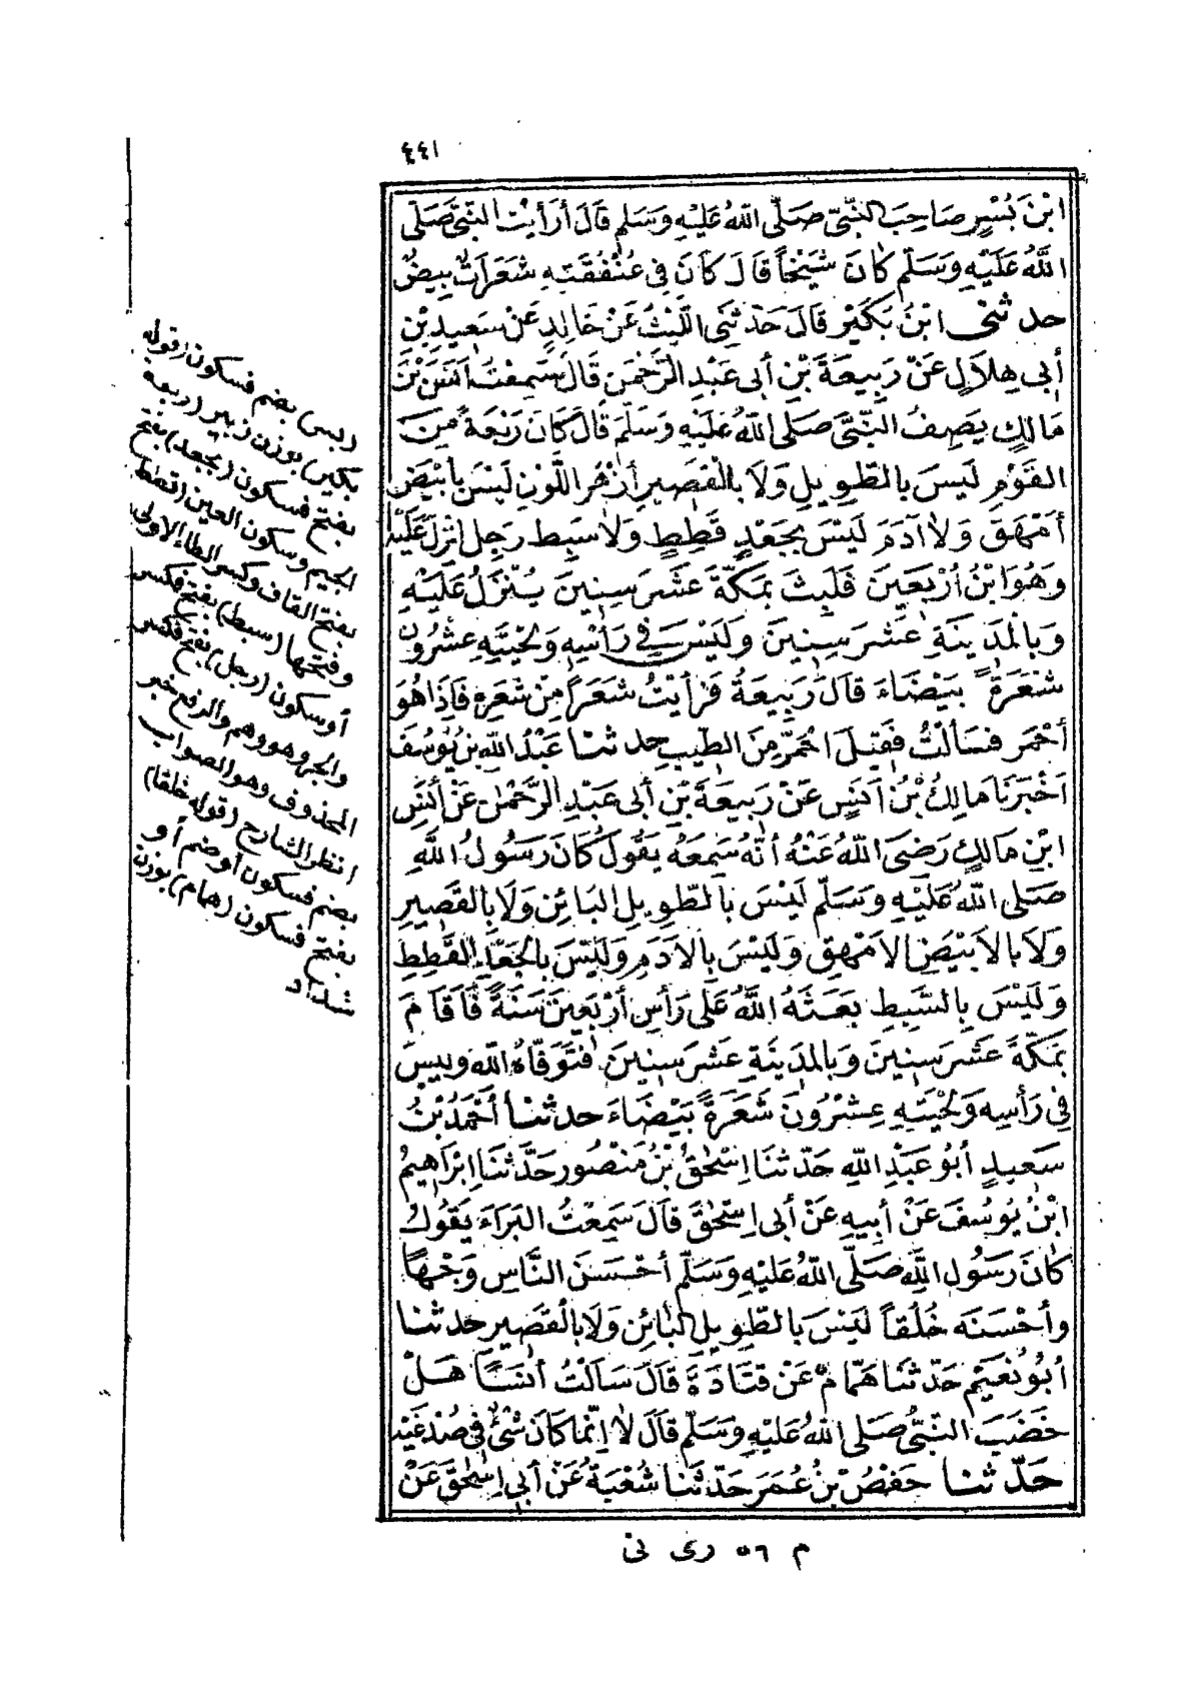 ٤٤١
ابْنَ بُسْرٍ صَاحِبَ النَّبِيِّ صَلَّى اللهُ عَلَيْهِ وَسَلَّمَ قَالَ أَرَأَيْتَ النَّبِيَّ صَلَّى
اللهُ عَلَيْهِ وَسَلَّمَ كَانَ شَيْخًا قَالَ كَانَ فِي عَنْفَقَتِهِ شَعَرَاتٌ بِيضٌ
حدثنى ابْنُ بُكَيْرٍ قَالَ حَدَّثَنِي اللَّيْثُ عَنْ خَالِدٍ عَنْ سَعِيدِ بْنِ
أَبِي هِلَالٍ عَنْ رَبِيعَةَ بْنِ أَبِي عَبْدِ الرَّحْمٰنِ قَالَ سَمِعْتُ أَنَسَ بْنَ
مَالِكٍ يَصِفُ النَّبِيَّ صَلَّى اللهُ عَلَيْهِ وَسَلَّمَ قَالَ كَانَ رَبْعَةً مِنَ
القَوْمِ لَيْسَ بِالطَّوِيلِ وَلَا بِالْقَصِيرِ أَزْهَرَ اللَّوْنِ لَيْسَ بِأَبْيَضَ
أَمْهَقَ وَلَا آدَمَ لَيْسَ بِجَعْدٍ قَطِطٍ وَلَا سَبِطٍ رَجِلٍ أُنْزِلَ عَلَيْهِ
وَهُوَ ابْنُ أَرْبَعِينَ فَلَبِثَ بِمَكَّةَ عَشْرَ سِنِينَ يُنْزَلُ عَلَيْهِ
وَبِالْمَدِينَةِ عَشْرَ سِنِينَ وَلَيْسَ فِي رَأْسِهِ وَلِحْيَتِهِ عِشْرُونَ
شَعْرَةً بَيْضَاءَ قَالَ رَبِيعَةُ فَرَأَيْتُ شَعَرًا مِنْ شَعَرِهِ فَإِذَا هُوَ
أَحْمَرُ فَسَأَلْتُ فَقِيلَ احْمَرَّ مِنَ الطِّيبِ حدثنا عَبْدُ اللهِ بْنُ يُوسُفَ
أَخْبَرَنَا مَالِكُ بْنُ أَنَسٍ عَنْ رَبِيعَةَ بْنِ أَبِي عَبْدِ الرَّحْمٰنِ عَنْ أَنَسِ
ابْنِ مَالِكٍ رَضِيَ اللهُ عَنْهُ أَنَّهُ سَمِعَهُ يَقُولُ كَانَ رَسُولُ اللَّهِ
صَلَّى اللهُ عَلَيْهِ وَسَلَّمَ لَيْسَ بِالطَّوِيلِ البَائِنِ وَلَا بِالْقَصِيرِ
وَلَا بِالْأَبْيَضِ الْأَمْهَقِ وَلَيْسَ بِالْآدَمِ وَلَيْسَ بِالْجَعْدِ الْقَطِطِ
وَلَيْسَ بِالسَّبِطِ بَعَثَهُ اللَّهُ عَلَى رَأْسِ أَرْبَعِينَ سَنَةً فَأَقَامَ
بِمَكَّةَ عَشْرَ سِنِينَ وَبِالْمَدِينَةِ عَشْرَ سِنِينَ فَتَوَفَّاهُ اللهُ وليسَ
فِي رَأْسِهِ وَلِحْيَتِهِ عِشْرُونَ شَعَرَةً بَيْضَاءَ حدثنا أَحْمَدُ بْنُ
سَعِيدٍ أَبُو عَبْدِ اللهِ حَدَّثَنَا إِسْحٰقُ بْنُ مَنْصُورٍ حَدَّثَنَا إِبْرَاهِيمُ
ابْنُ يُوسُفَ عَنْ أَبِيهِ عَنْ أَبِي إِسْحٰقَ قَالَ سَمِعْتُ البَرَاءَ يَقُولُ
كَانَ رَسُولُ اللَّهِ صَلَّى اللهُ عَلَيْهِ وَسَلَّمَ أَحْسَنَ النَّاسِ وَجْهًا
وأَحْسَنَه خُلُقًا لَيْسَ بِالطَّوِيلِ البَائِنِ وَلَا بِالْقَصِيرِ حدثنا
أَبُو نُعَيْمٍ حَدَّثَنَا هَمَّامٌ عَنْ قَتَادَةَ قَالَ سَأَلْتُ أَنَسًا هَلْ
خَضَبَ النَّبِيُّ صَلَّى اللهُ عَلَيْهِ وَسَلَّمَ قَالَ لَا إِنَّمَا كَانَ شَيْءٌ فِي صُدْغَيْهِ
حَدَّثنا حَفْصُ بْنُ عُمَرَ حَدَّثَنَا شُعْبَةُ عَنْ أَبِي إِسْحٰقَ عَنْ
(قوله
بسر) بضم فسكون
بكير) بوزن زبير (ربعة
بفتح فسكون (بجعد) بفتح
الجيم وسكون العين (قطط
بفتح القاف وكسر الطاء الاولى
وفتحها (سبط) بفتح فكسر
أو سكون (رجل) بفتح فكسر
والجر وهو وهم والرفع خبر
المحذوف وهو الصواب
انظر الشارح (قوله خلقا)
بضم فسكون أو ضم أو
بفتح فسكون (همام) بوزن
شداد
م ٥٦ رى نى